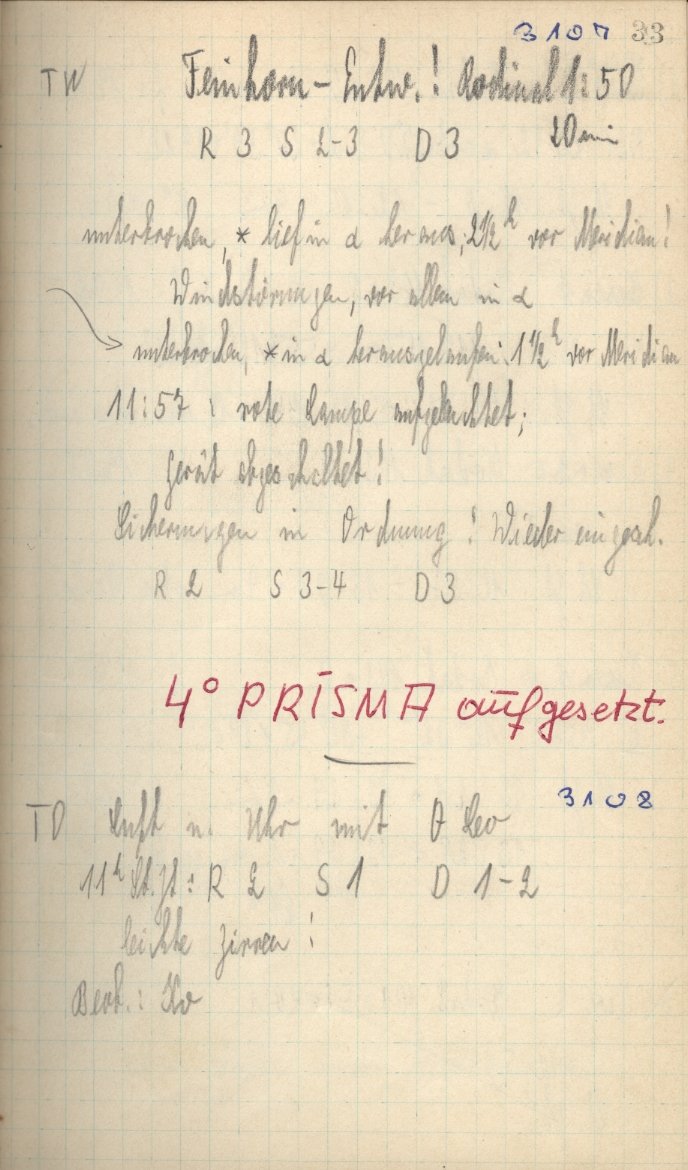 3107 33
TW Feinkorn-Entw.! Rodinal 1:50
R 3 S 2-3 D 3 20 min
unterbrochen, * lief in α heraus, 2½ h vor Meridian!
Windstörungen, vor allem in α
unterbrochen, * in α herausgelaufen: 1½ h vor Meridian
11:57 : rote Lampe aufgeleuchtet;
Gerät abgeschaltet!
Sicherungen in Ordnung! Wieder eingesch.
R 2 S 3-4 D 3
4° PRISMA aufgesetzt.
3108
TD Luft u. Uhr mit θ Leo
11h St.Zt: R 2 S 1 D 1-2
leichte Zirren!
Beob.: